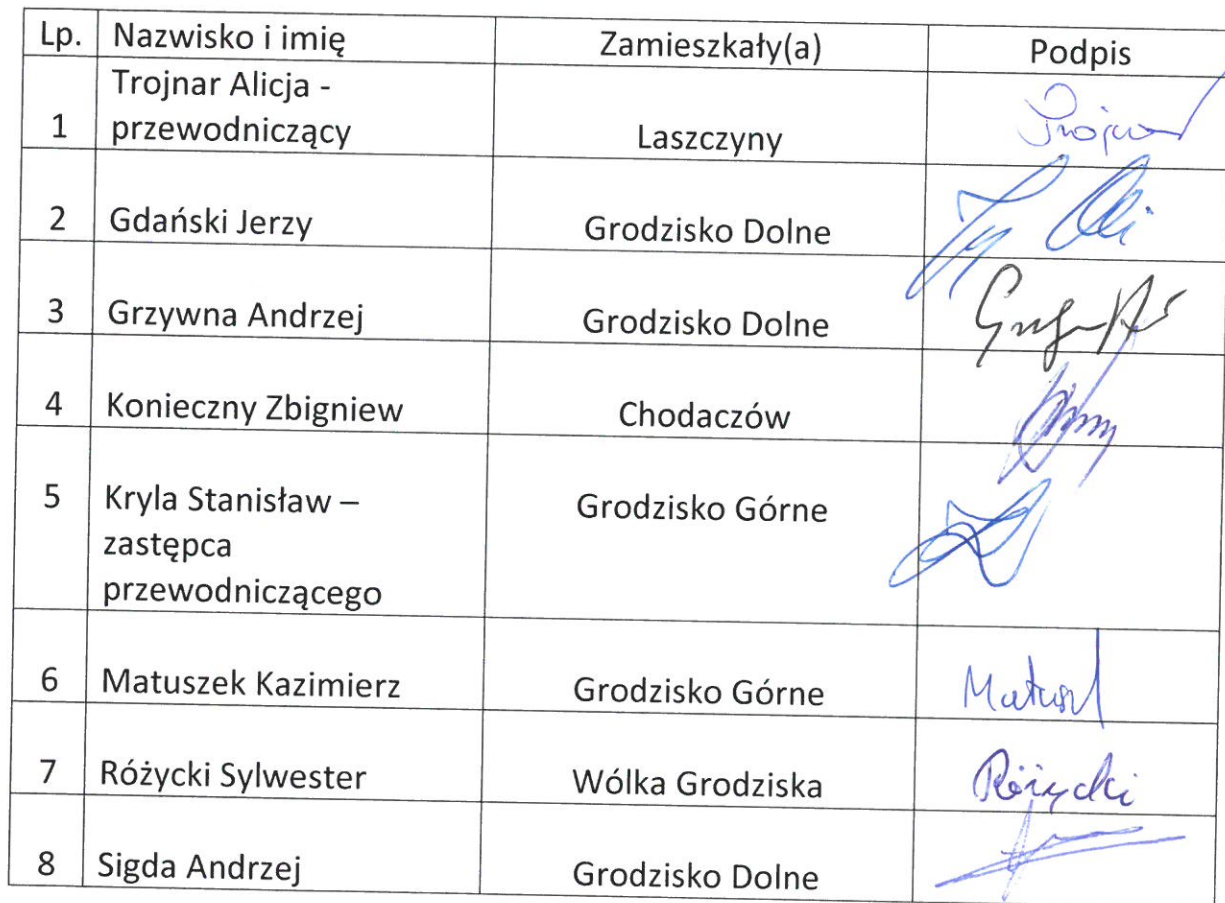 Lp. Nazwisko i imię Zamieszkały(a) Podpis
Trojnar Alicja -
1 przewodniczący Laszczyny
2 Gdański Jerzy Grodzisko Dolne
3 Grzywna Andrzej Grodzisko Dolne
4 Konieczny Zbigniew Chodaczów
5 Kryla Stanisław – Grodzisko Górne
zastępca
przewodniczącego
6 Matuszek Kazimierz Grodzisko Górne
7 Różycki Sylwester Wólka Grodziska Różycki
8 Sigda Andrzej Grodzisko Dolne